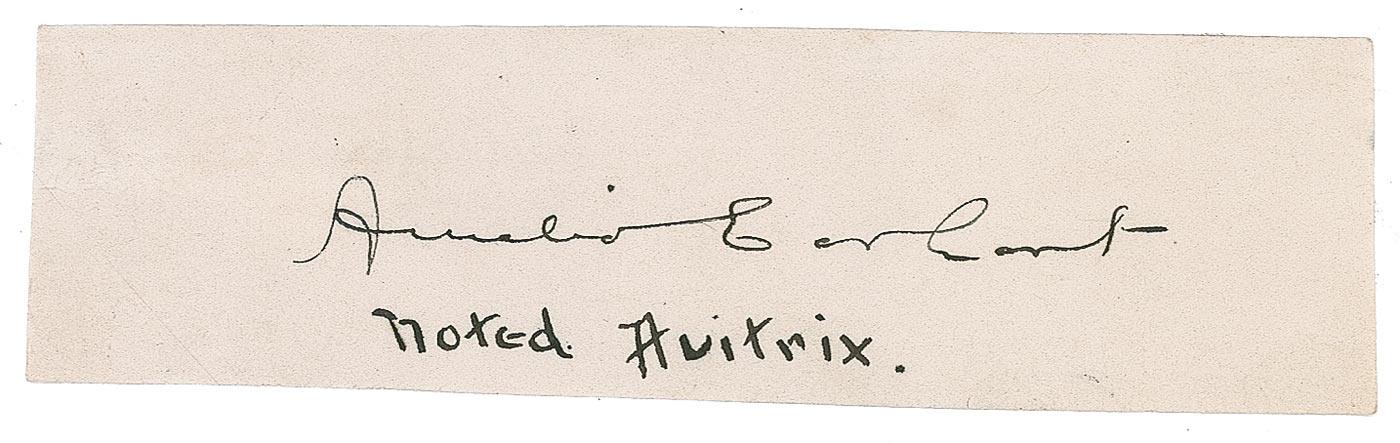 Amelia Earhart
Noted Avitrix.